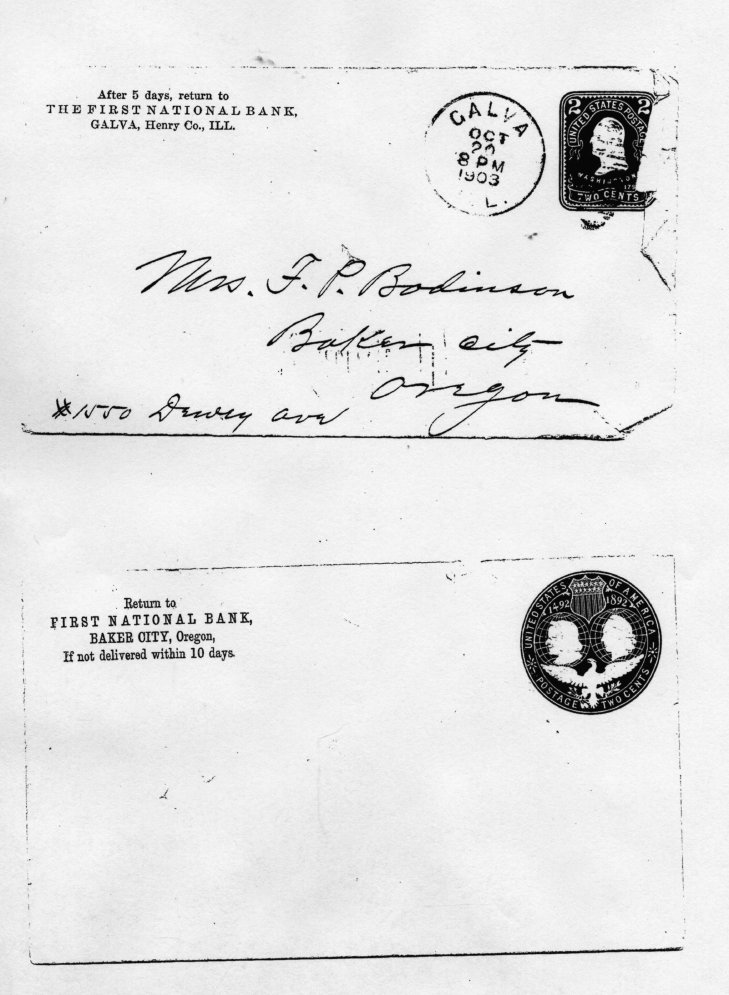 After 5 days, return to
THE FIRST NATIONAL BANK,
GALVA, Henry Co., ILL.
GALVA
OCT
20
8 PM
1903
L.
2 2
UNITED STATES POSTAGE
WASHINGTON
TWO CENTS
Mrs. F. P. Bodinson
Baker City
Oregon
#1550 Dewey Ave
Return to
FIRST NATIONAL BANK,
BAKER CITY, Oregon,
If not delivered within 10 days.
UNITED STATES OF AMERICA
1492 1892
POSTAGE TWO CENTS